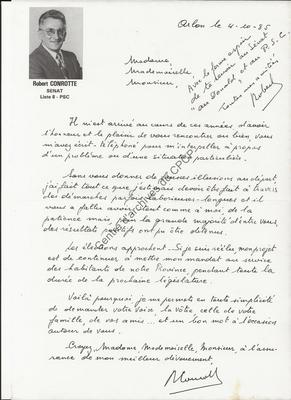 Robert CONROTTE
SENAT
Liste 8 - PSC
Arlon le 4-10-85
Madame,
Mademoiselle,
Monsieur,
Avec le ferme espoir
de te savoir au Sénat
et au P.S.C.
Robert
Il m'est arrivé au cours de ces années d'avoir
l'honneur et le plaisir de vous rencontrer ou bien vous
m'avez écrit - téléphoné pour m'interpeller à propos
d'un problème ou d'une situation particulière.
Sans vous donner de fausses illusions au départ,
j'ai fait tout ce que j'estimais devoir être fait à travers
des démarches parfois laborieuses - longues et il
vous a fallu avoir tout comme à moi, de la
patience mais, pour la grande majorité d'entre vous,
des résultats positifs ont pu être obtenus.
Les élections approchent. Si je suis réélu, mon projet
est de continuer à mettre mon mandat au service
des habitants de notre Province, pendant toute la
durée de la prochaine législature.
Voilà pourquoi je me permets en toute simplicité
de demander votre voix, la vôtre, celle de votre
famille, de vos amis... et un bon mot à l'occasion
autour de vous.
Croyez, Madame, Mademoiselle, Monsieur, à l'assu-
rance de mon meilleur dévouement.